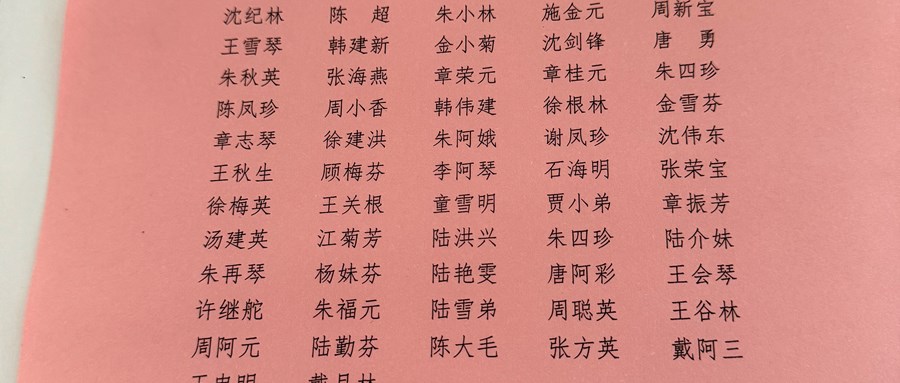 沈纪林 陈 超 朱小林 施金元 周新宝
王雪琴 韩建新 金小菊 沈剑锋 唐 勇
朱秋英 张海燕 章荣元 章桂元 朱四珍
陈凤珍 周小香 韩伟建 徐根林 金雪芬
章志琴 徐建洪 朱阿娥 谢凤珍 沈伟东
王秋生 顾梅芬 李阿琴 石海明 张荣宝
徐梅英 王关根 童雪明 贾小弟 章振芳
汤建英 江菊芳 陆洪兴 朱四珍 陆介妹
朱再琴 杨妹芬 陆艳雯 唐阿彩 王会琴
许继舵 朱福元 陆雪弟 周聪英 王谷林
周阿元 陆勤芬 陈大毛 张方英 戴阿三